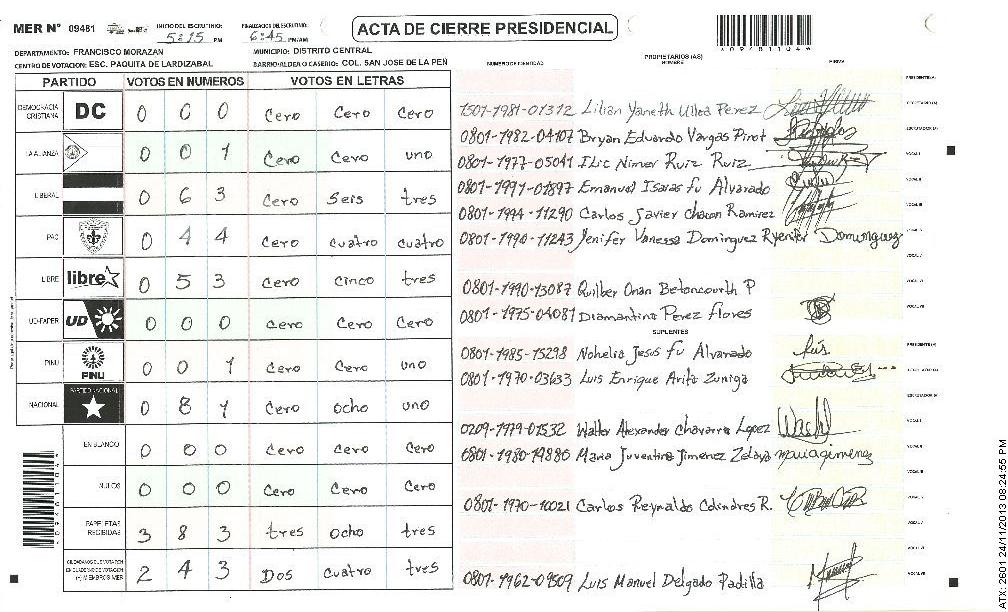 MER Nº 09481 INICIO DEL ESCRUTINIO: 5:15 PM FINALIZACION DEL ESCRUTINIO: 6:45 PM/AM ACTA DE CIERRE PRESIDENCIAL
DEPARTAMENTO: FRANCISCO MORAZAN MUNICIPIO: DISTRITO CENTRAL
CENTRO DE VOTACION: ESC. PAQUITA DE LARDIZABAL BARRIO/ALDEA O CASERIO: COL. SAN JOSE DE LA PEÑ
NUMERO DE IDENTIDAD PROPIETARIOS (AS) NOMBRE FIRMA
PARTIDO VOTOS EN NUMEROS VOTOS EN LETRAS
DEMOCRACIA CRISTIANA DC 0 0 0 Cero Cero Cero
LA ALIANZA 0 0 1 Cero Cero uno
LIBERAL 0 6 3 Cero Seis tres
PAC 0 4 4 Cero cuatro cuatro
LIBRE libre 0 5 3 Cero cinco tres
UD-FAPER UD 0 0 0 Cero Cero Cero
PINU PINU 0 0 1 Cero Cero uno
NACIONAL PARTIDO NACIONAL 0 8 1 Cero ocho uno
EN BLANCO 0 0 0 Cero Cero Cero
NULOS 0 0 0 Cero Cero Cero
PAPELETAS RECIBIDAS 3 8 3 tres ocho tres
(+) MIEMBROS MER 2 4 3 Dos cuatro tres
1501-1981-01312 Lilian Yaneth Ulloa Perez
0801-1982-04107 Bryan Eduardo Vargas Pinot
0801-1977-05041 Ilic Nimer Ruiz Ruiz
0801-1991-01897 Emanuel Isaias Fu Alvarado
0801-1944-11290 Carlos Javier chacon Ramirez
0801-1990-11243 Yenifer Vanessa Dominguez R Yenifer Dominguez
0801-1990-13087 Quilber Onan Betancourth P
0801-1975-04081 Diamantina Perez flores
SUPLENTES
0801-1985-15298 Nohelia Jesus fu Alvarado
0801-1970-03633 Luis Enrique Arita Zuniga
0209-1979-01532 Walter Alexander chavarria Lopez
0801-1980-14880 Maria Juventina Jimenez Zelaya Maria jimenez
0801-1970-10021 Carlos Reynaldo Colindres R.
0801-1962-09509 Luis Manuel Delgado Padilla
ATX 2601 24/11/2013 08:24:55 PM